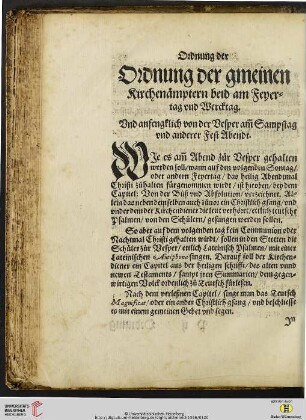 Ordnung der
Ordnung der gmeinen
Kirchenämptern beid am Feyer-
tag vnd Wercktag.
Vnd anfengklich von der Vesper am̃ Sampstag
vnd anderer Fest Abendt.
WIe es am̃ Abend zůr Vesper gehalten
werden soll/ wann auff den volgenden Sontag/
oder andern Feyertag/ das heilig Abendmal
Christi zůhalten fürgenommen wirdt/ ist hieuden/ bey dem
Capitel: Von der Bůß vnd Absolution/ verzeichnet. Al-
lein das neben demselben auch zůuor ein Christlich gsang/ vnd
vnder dem der Kirchendiener die leut verhört/ etlich teutsche
Psalmen/ von den Schülern/ gesungen werden sollen.
So aber auff dem volgenden tag kein Communion oder
Nachtmal Christi gehalten würdt/ sollen in den Stetten die
Schüler zůr Vesper/ etlich Lateinisch Psalmen/ mit einer
Lateinischen Antiphona singen. Darauff soll der Kirchen-
diener ein Capitel auß der heiligen schrifft/ des alten vnnd
newen Testaments/ sampt jren Summarien/ dem gegen-
wertigen Volck ordenlich zů Teutsch fürlesen.
Nach dem verlesnen Capitel/ singe man das Teutsch
Magnificat/ oder ein ander Christlich gsang/ vnd beschliesse
es mit einem gemeinen Gebet vnd segen.
Jn